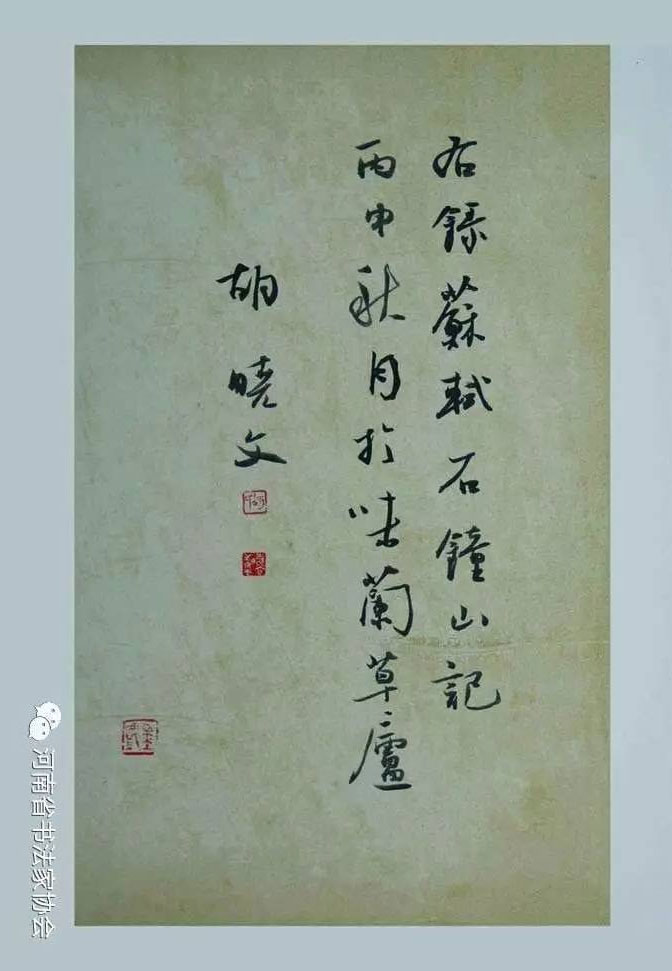 右錄蘇軾石鐘山記
丙申秋月於味蘭草廬
胡曉文
河南省书法家协会